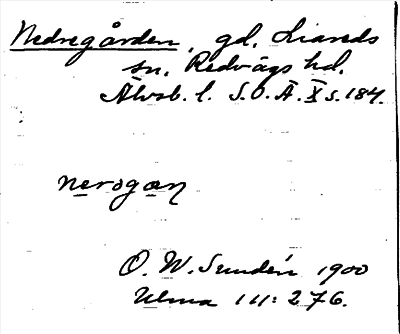 Nedregården, gd. Liareds
sn. Redvägs hd.
Älvsb. l. S.O.Ä. X s. 184.
nerogæn
O. W. Sundén 1900
Ulma 111: 276.